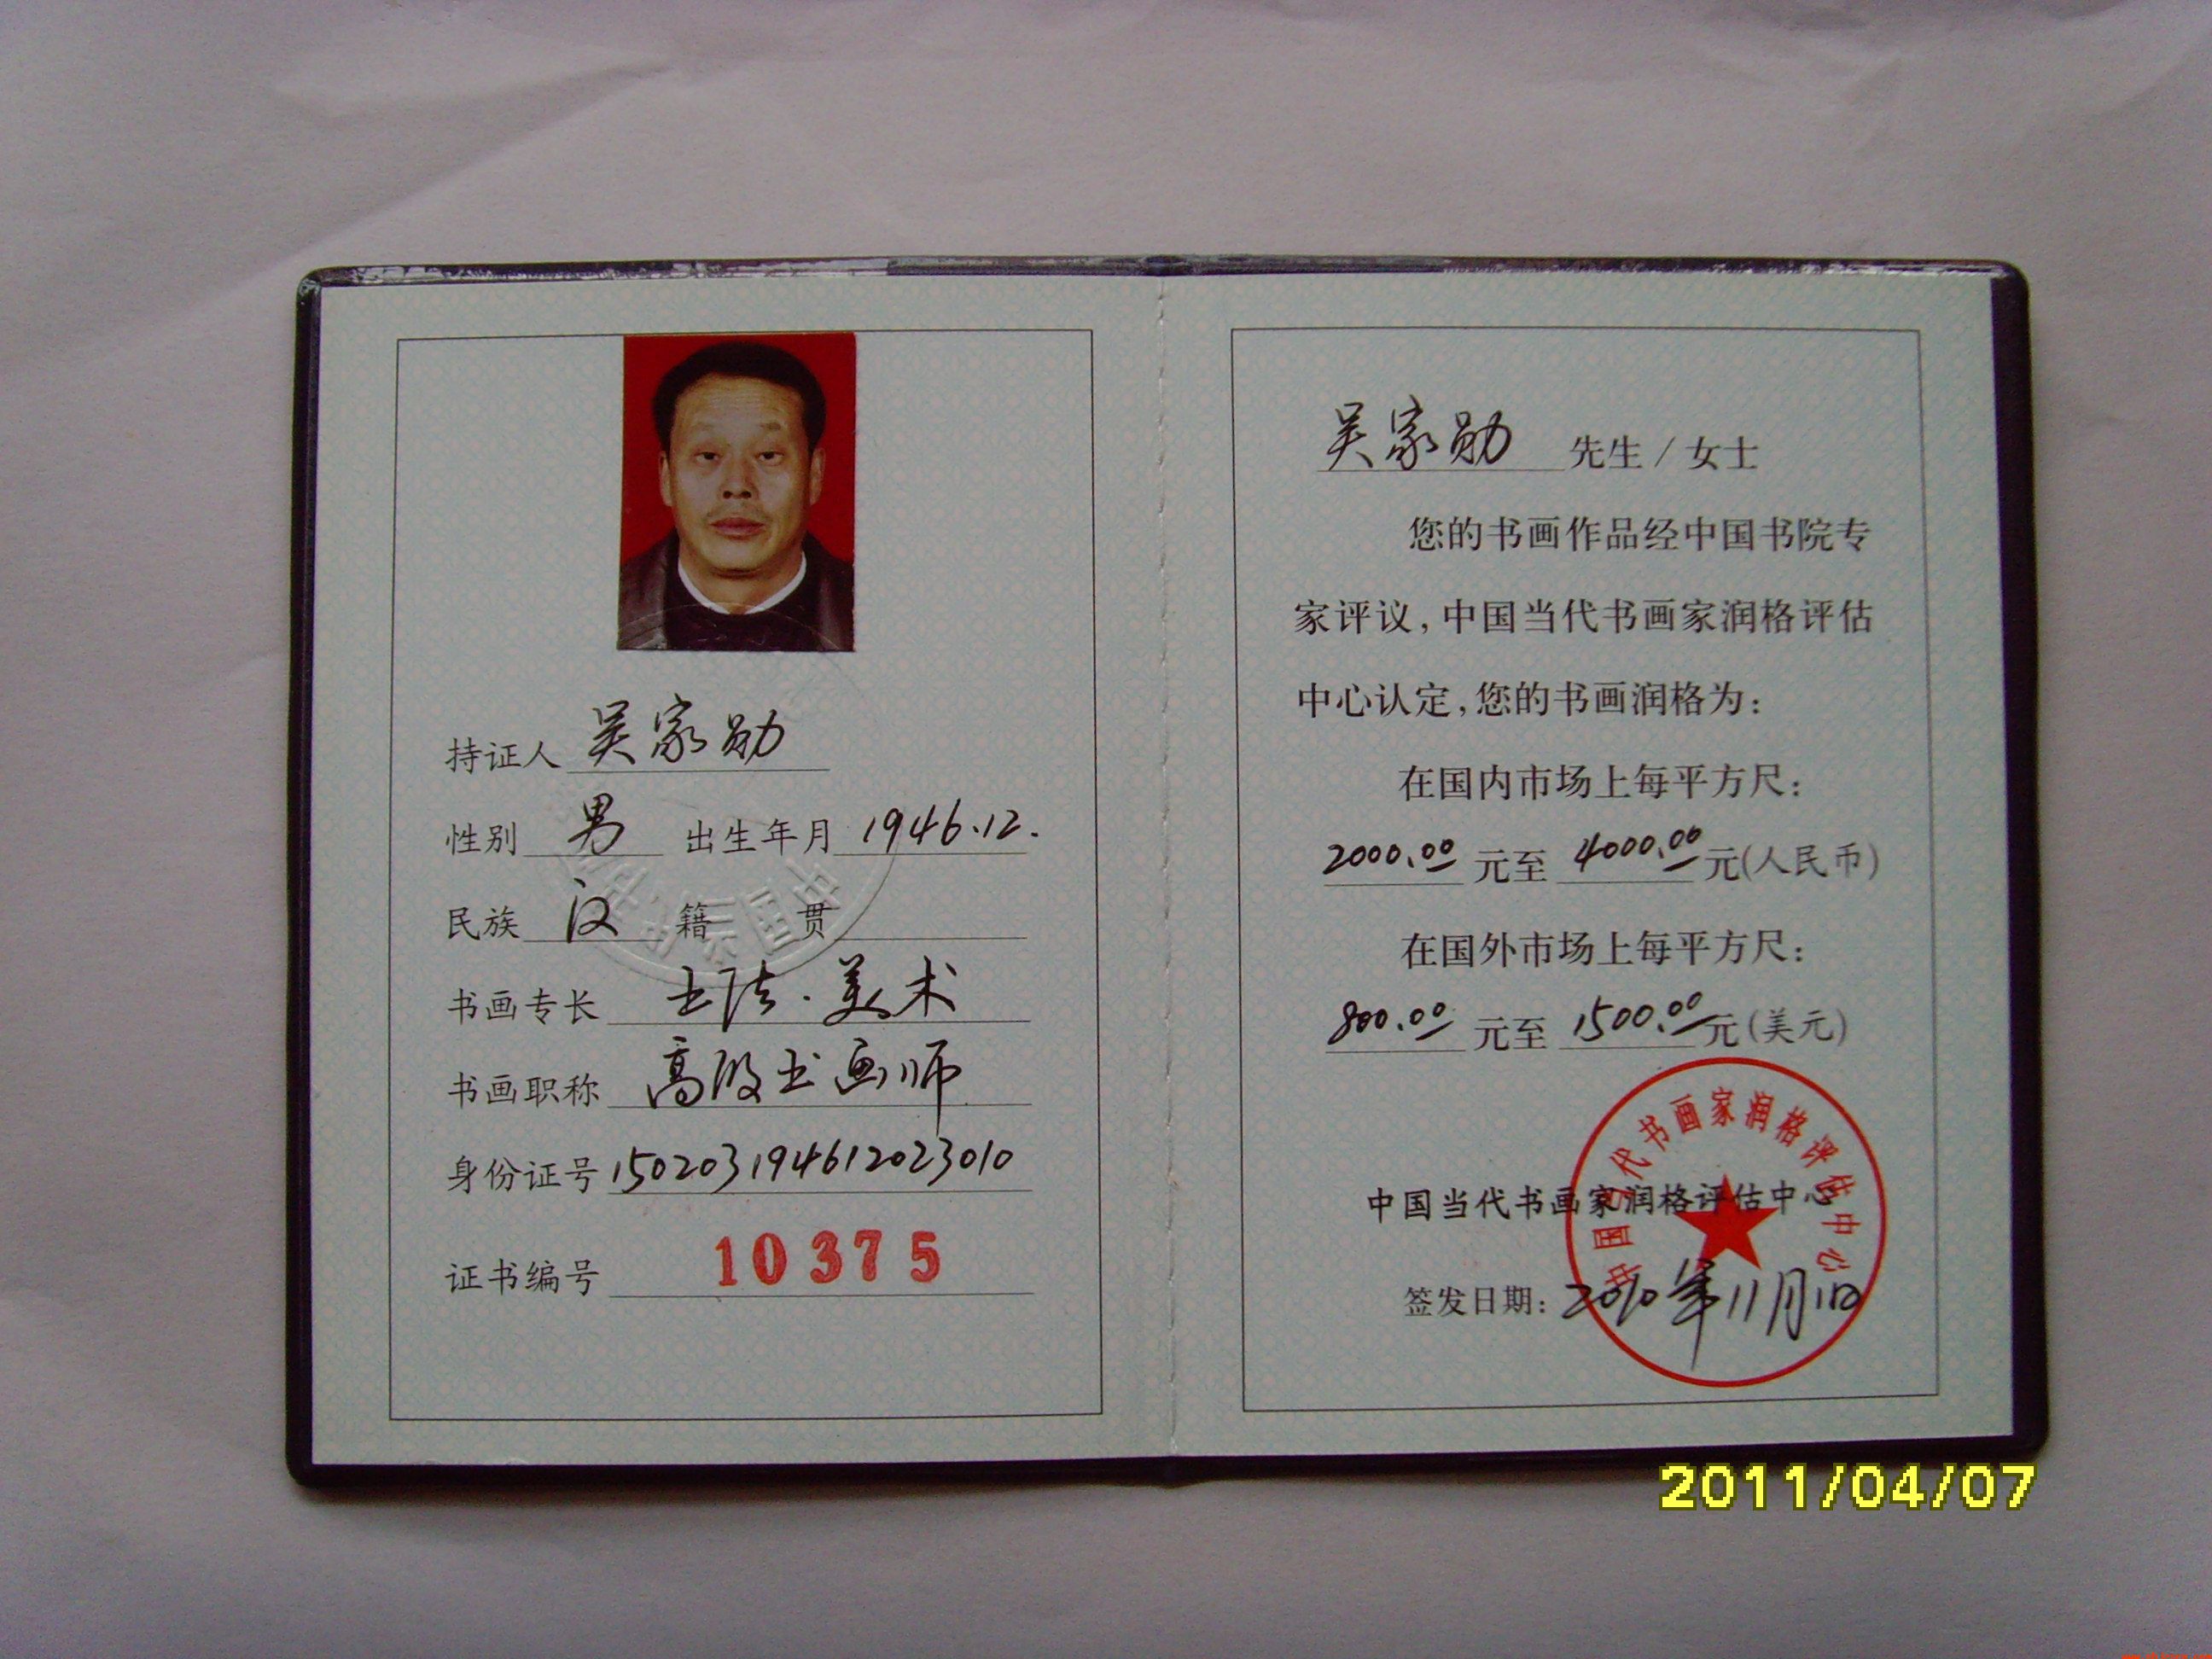 持证人 吴家勋
性别 男 出生年月 1946.12.
民族 汉 籍贯
书画专长 书法·美术
书画职称 高级书画师
身份证号 150203194612023010
证书编号 10375
吴家勋 先生/女士
您的书画作品经中国书院专
家评议,中国当代书画家润格评估
中心认定,您的书画润格为:
在国内市场上每平方尺:
2000.00 元至 4000.00 元(人民币)
在国外市场上每平方尺:
800.00 元至 1500.00 元(美元)
中国当代书画家润格评估中心
中国当代书画家润格评估中心
签发日期: 2010年11月1日
2011/04/07